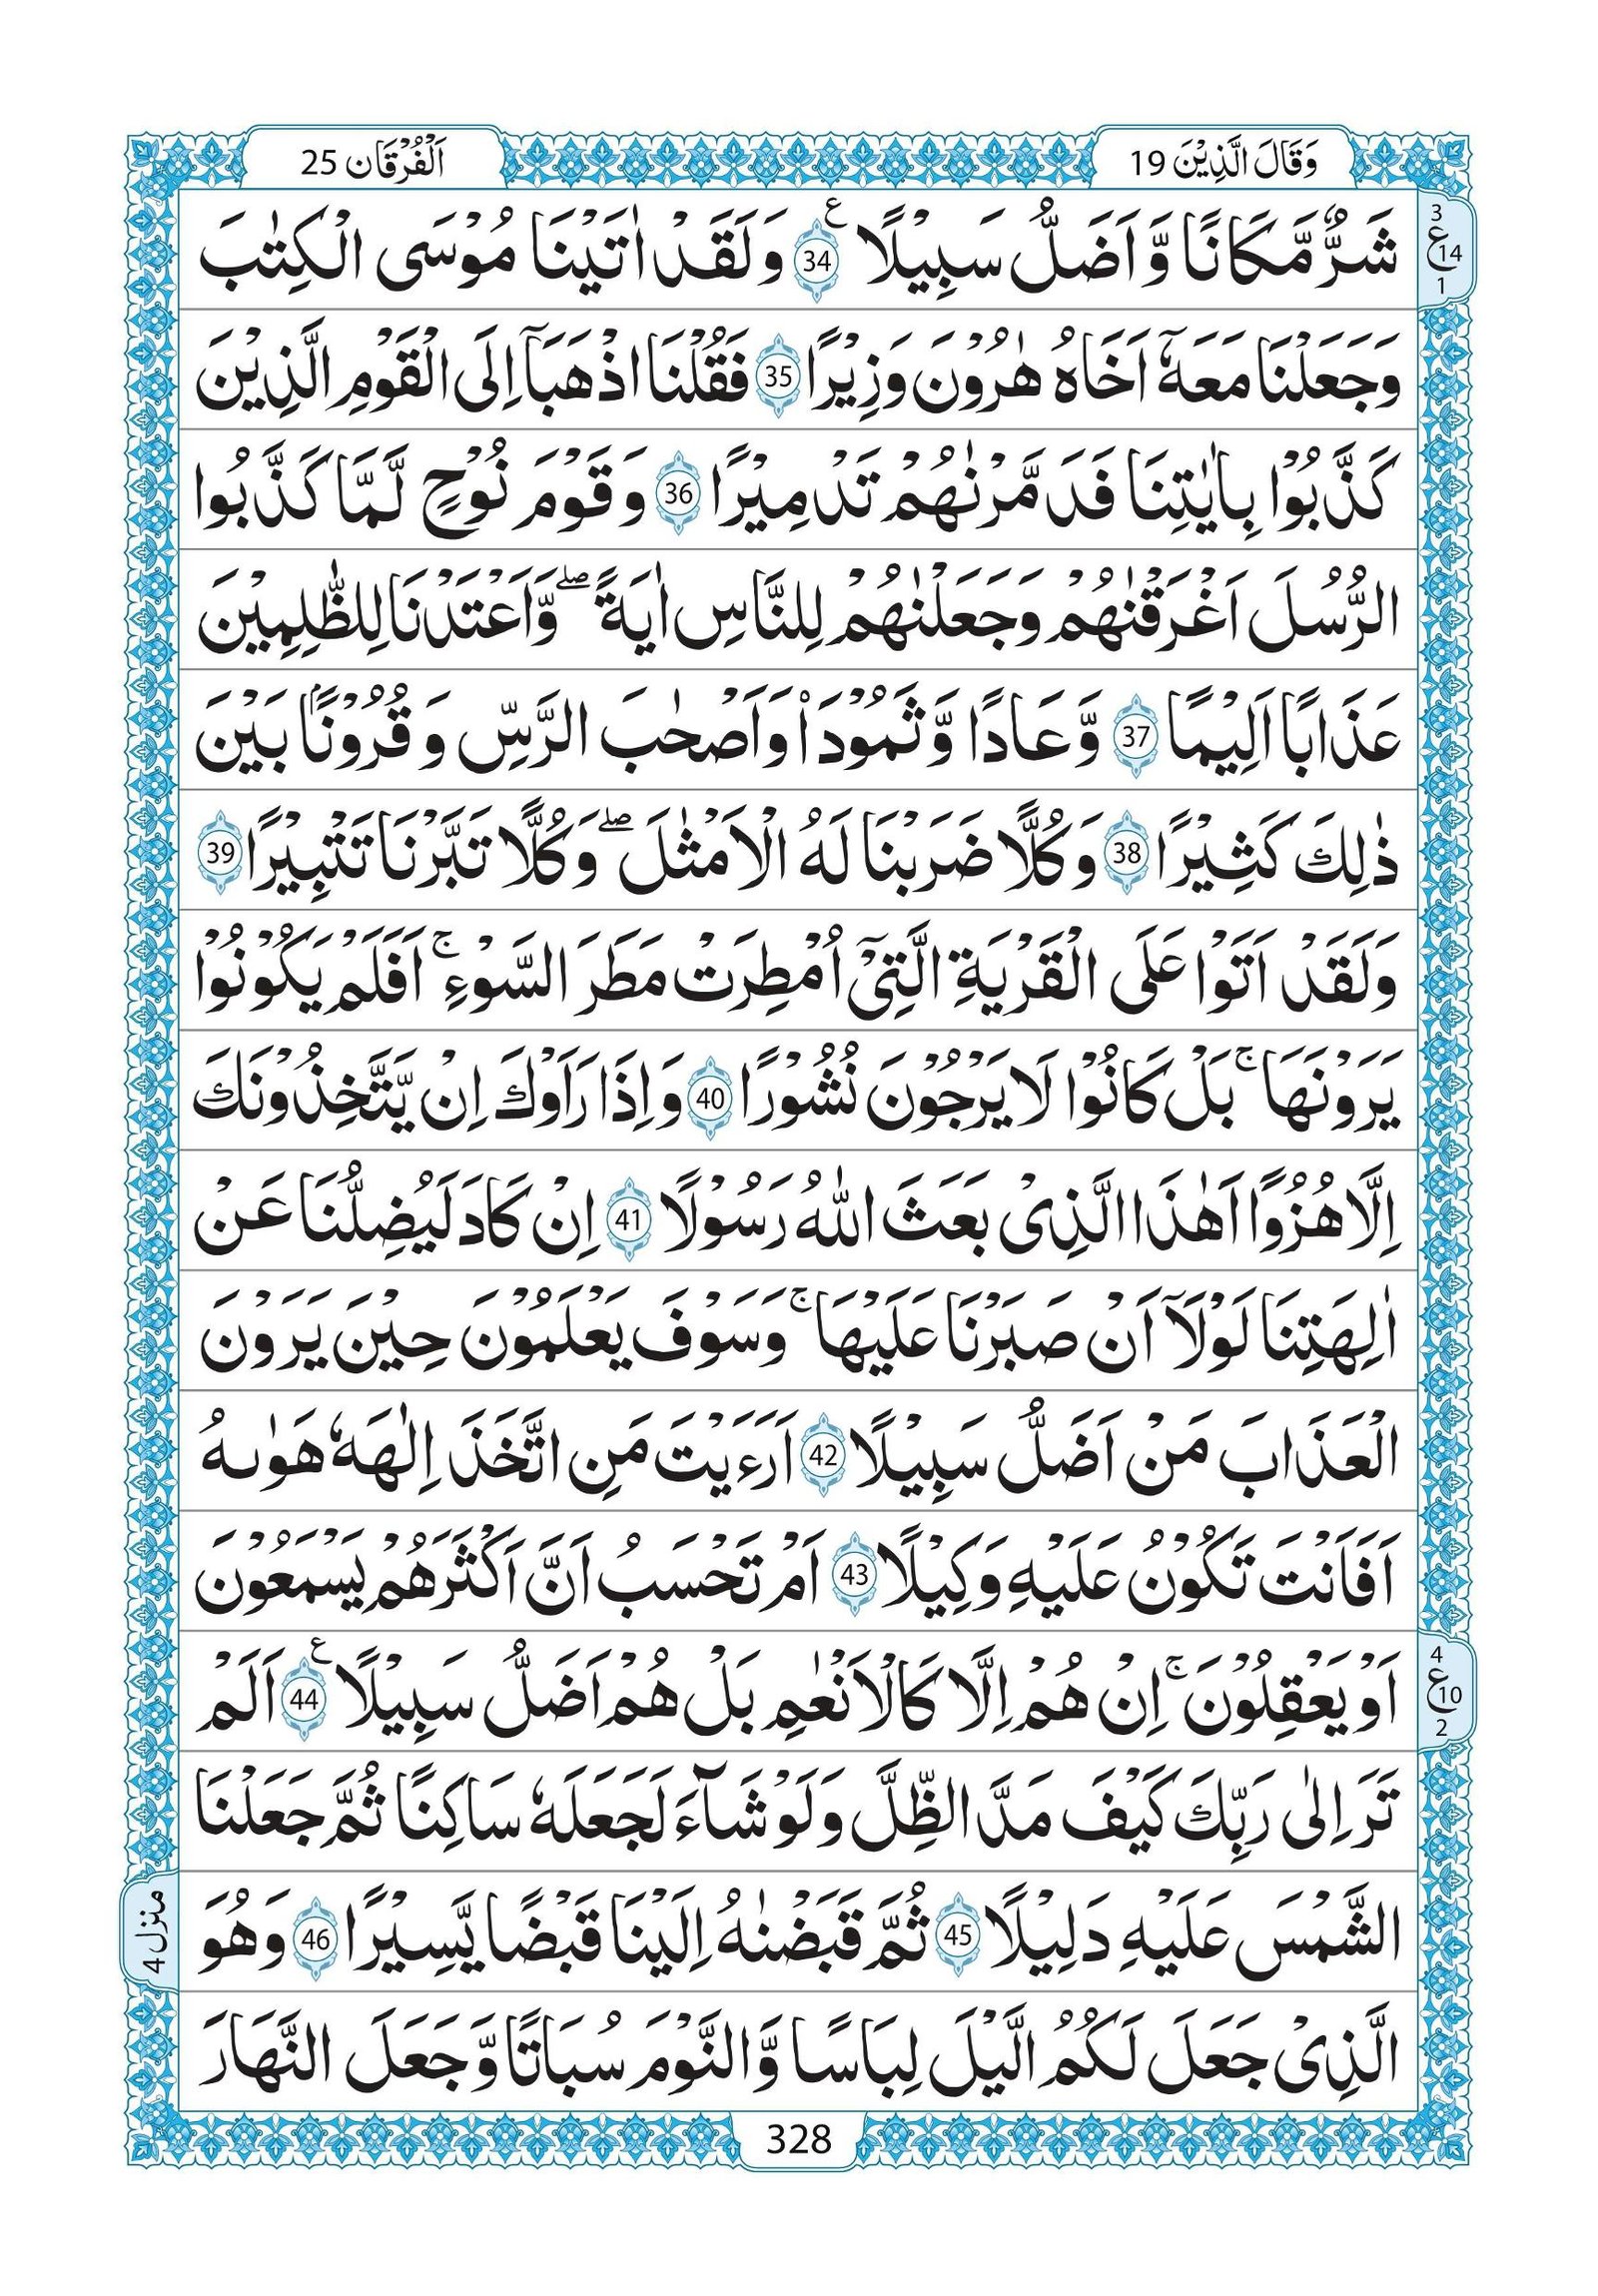 وَقَالَ الَّذِيْنَ 19
اَلْفُرْقَان 25
شَرٌّ مَّكَانًا وَّاَضَلُّ سَبِيْلًا ؑ 34 وَلَقَدْ اٰتَيْنَا مُوْسَى الْكِتٰبَ
3
ع 14
1
وَجَعَلْنَا مَعَهٗٓ اَخَاهُ هٰرُوْنَ وَزِيْرًا 35 فَقُلْنَا اذْهَبَآ اِلَى الْقَوْمِ الَّذِيْنَ
كَذَّبُوْا بِاٰيٰتِنَا فَدَمَّرْنٰهُمْ تَدْمِيْرًا 36 وَقَوْمَ نُوْحٍ لَّمَّا كَذَّبُوا
الرُّسُلَ اَغْرَقْنٰهُمْ وَجَعَلْنٰهُمْ لِلنَّاسِ اٰيَةً ۖ وَّاَعْتَدْنَا لِلظّٰلِمِيْنَ
عَذَابًا اَلِيْمًا 37 وَّعَادًا وَّثَمُوْدَا۟ وَاَصْحٰبَ الرَّسِّ وَقُرُوْنًاۢ بَيْنَ
ذٰلِكَ كَثِيْرًا 38 وَكُلًّا ضَرَبْنَا لَهُ الْاَمْثٰلَ ۖ وَكُلًّا تَبَّرْنَا تَتْبِيْرًا 39
وَلَقَدْ اَتَوْا عَلَى الْقَرْيَةِ الَّتِيْٓ اُمْطِرَتْ مَطَرَ السَّوْءِ ۚ اَفَلَمْ يَكُوْنُوْا
يَرَوْنَهَا ۚ بَلْ كَانُوْا لَا يَرْجُوْنَ نُشُوْرًا 40 وَاِذَا رَاَوْكَ اِنْ يَّتَّخِذُوْنَكَ
اِلَّا هُزُوًا اَهٰذَا الَّذِيْ بَعَثَ اللّٰهُ رَسُوْلًا 41 اِنْ كَادَ لَيُضِلُّنَا عَنْ
اٰلِهَتِنَا لَوْلَآ اَنْ صَبَرْنَا عَلَيْهَا ۚ وَسَوْفَ يَعْلَمُوْنَ حِيْنَ يَرَوْنَ
الْعَذَابَ مَنْ اَضَلُّ سَبِيْلًا 42 اَرَءَيْتَ مَنِ اتَّخَذَ اِلٰهَهٗ هَوٰىهُ
اَفَاَنْتَ تَكُوْنُ عَلَيْهِ وَكِيْلًا 43 اَمْ تَحْسَبُ اَنَّ اَكْثَرَهُمْ يَسْمَعُوْنَ
اَوْ يَعْقِلُوْنَ ۚ اِنْ هُمْ اِلَّا كَالْاَنْعٰمِ بَلْ هُمْ اَضَلُّ سَبِيْلًا ؑ 44 اَلَمْ
4
ع 10
2
تَرَ اِلٰى رَبِّكَ كَيْفَ مَدَّ الظِّلَّ وَلَوْ شَآءَ لَجَعَلَهٗ سَاكِنًا ثُمَّ جَعَلْنَا
الشَّمْسَ عَلَيْهِ دَلِيْلًا 45 ثُمَّ قَبَضْنٰهُ اِلَيْنَا قَبْضًا يَّسِيْرًا 46 وَهُوَ
منزل 4
الَّذِيْ جَعَلَ لَكُمُ الَّيْلَ لِبَاسًا وَّالنَّوْمَ سُبَاتًا وَّجَعَلَ النَّهَارَ
328